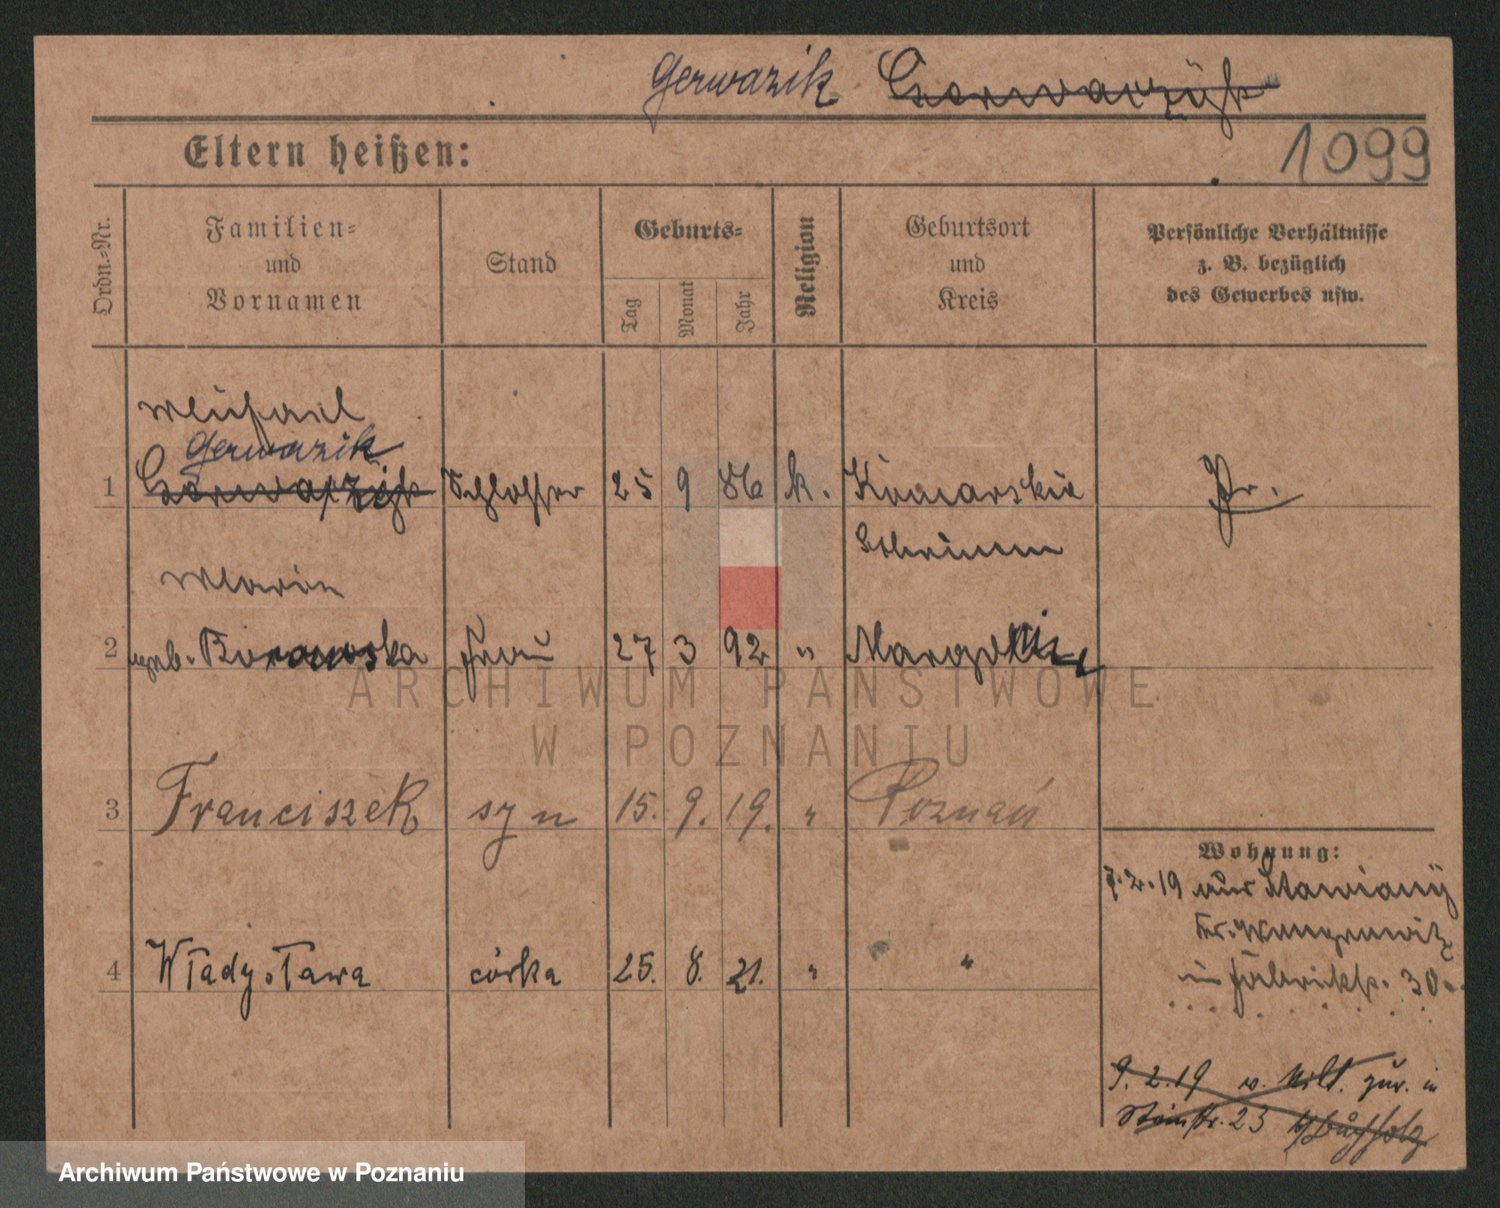 Gerwazik Gerwarzik
Eltern heißen:
1099
Ordn.-Nr.
Familien-
und
Vornamen
Stand
Geburts-
Tag
Monat
Jahr
Religion
Geburtsort
und
Kreis
Persönliche Verhältnisse
z. B. bezüglich
des Gewerbes usw.
Michael
Gerwazik
1 Schlosser 25 9 86 k. Pr.
Schrimm
Maria
2 geb. Borowska Frau 27 3 92 "
ARCHIWUM PAŃSTWOWE
W POZNANIU
3 Franciszek syn 15. 9. 19. " Poznań
Wohnung:
7.2.19 aus
4 Władysława córka 25. 8. 21. " "
in Fabrikstr. 30
9.2.19 v. Milt. zur. in
23
Archiwum Państwowe w Poznaniu